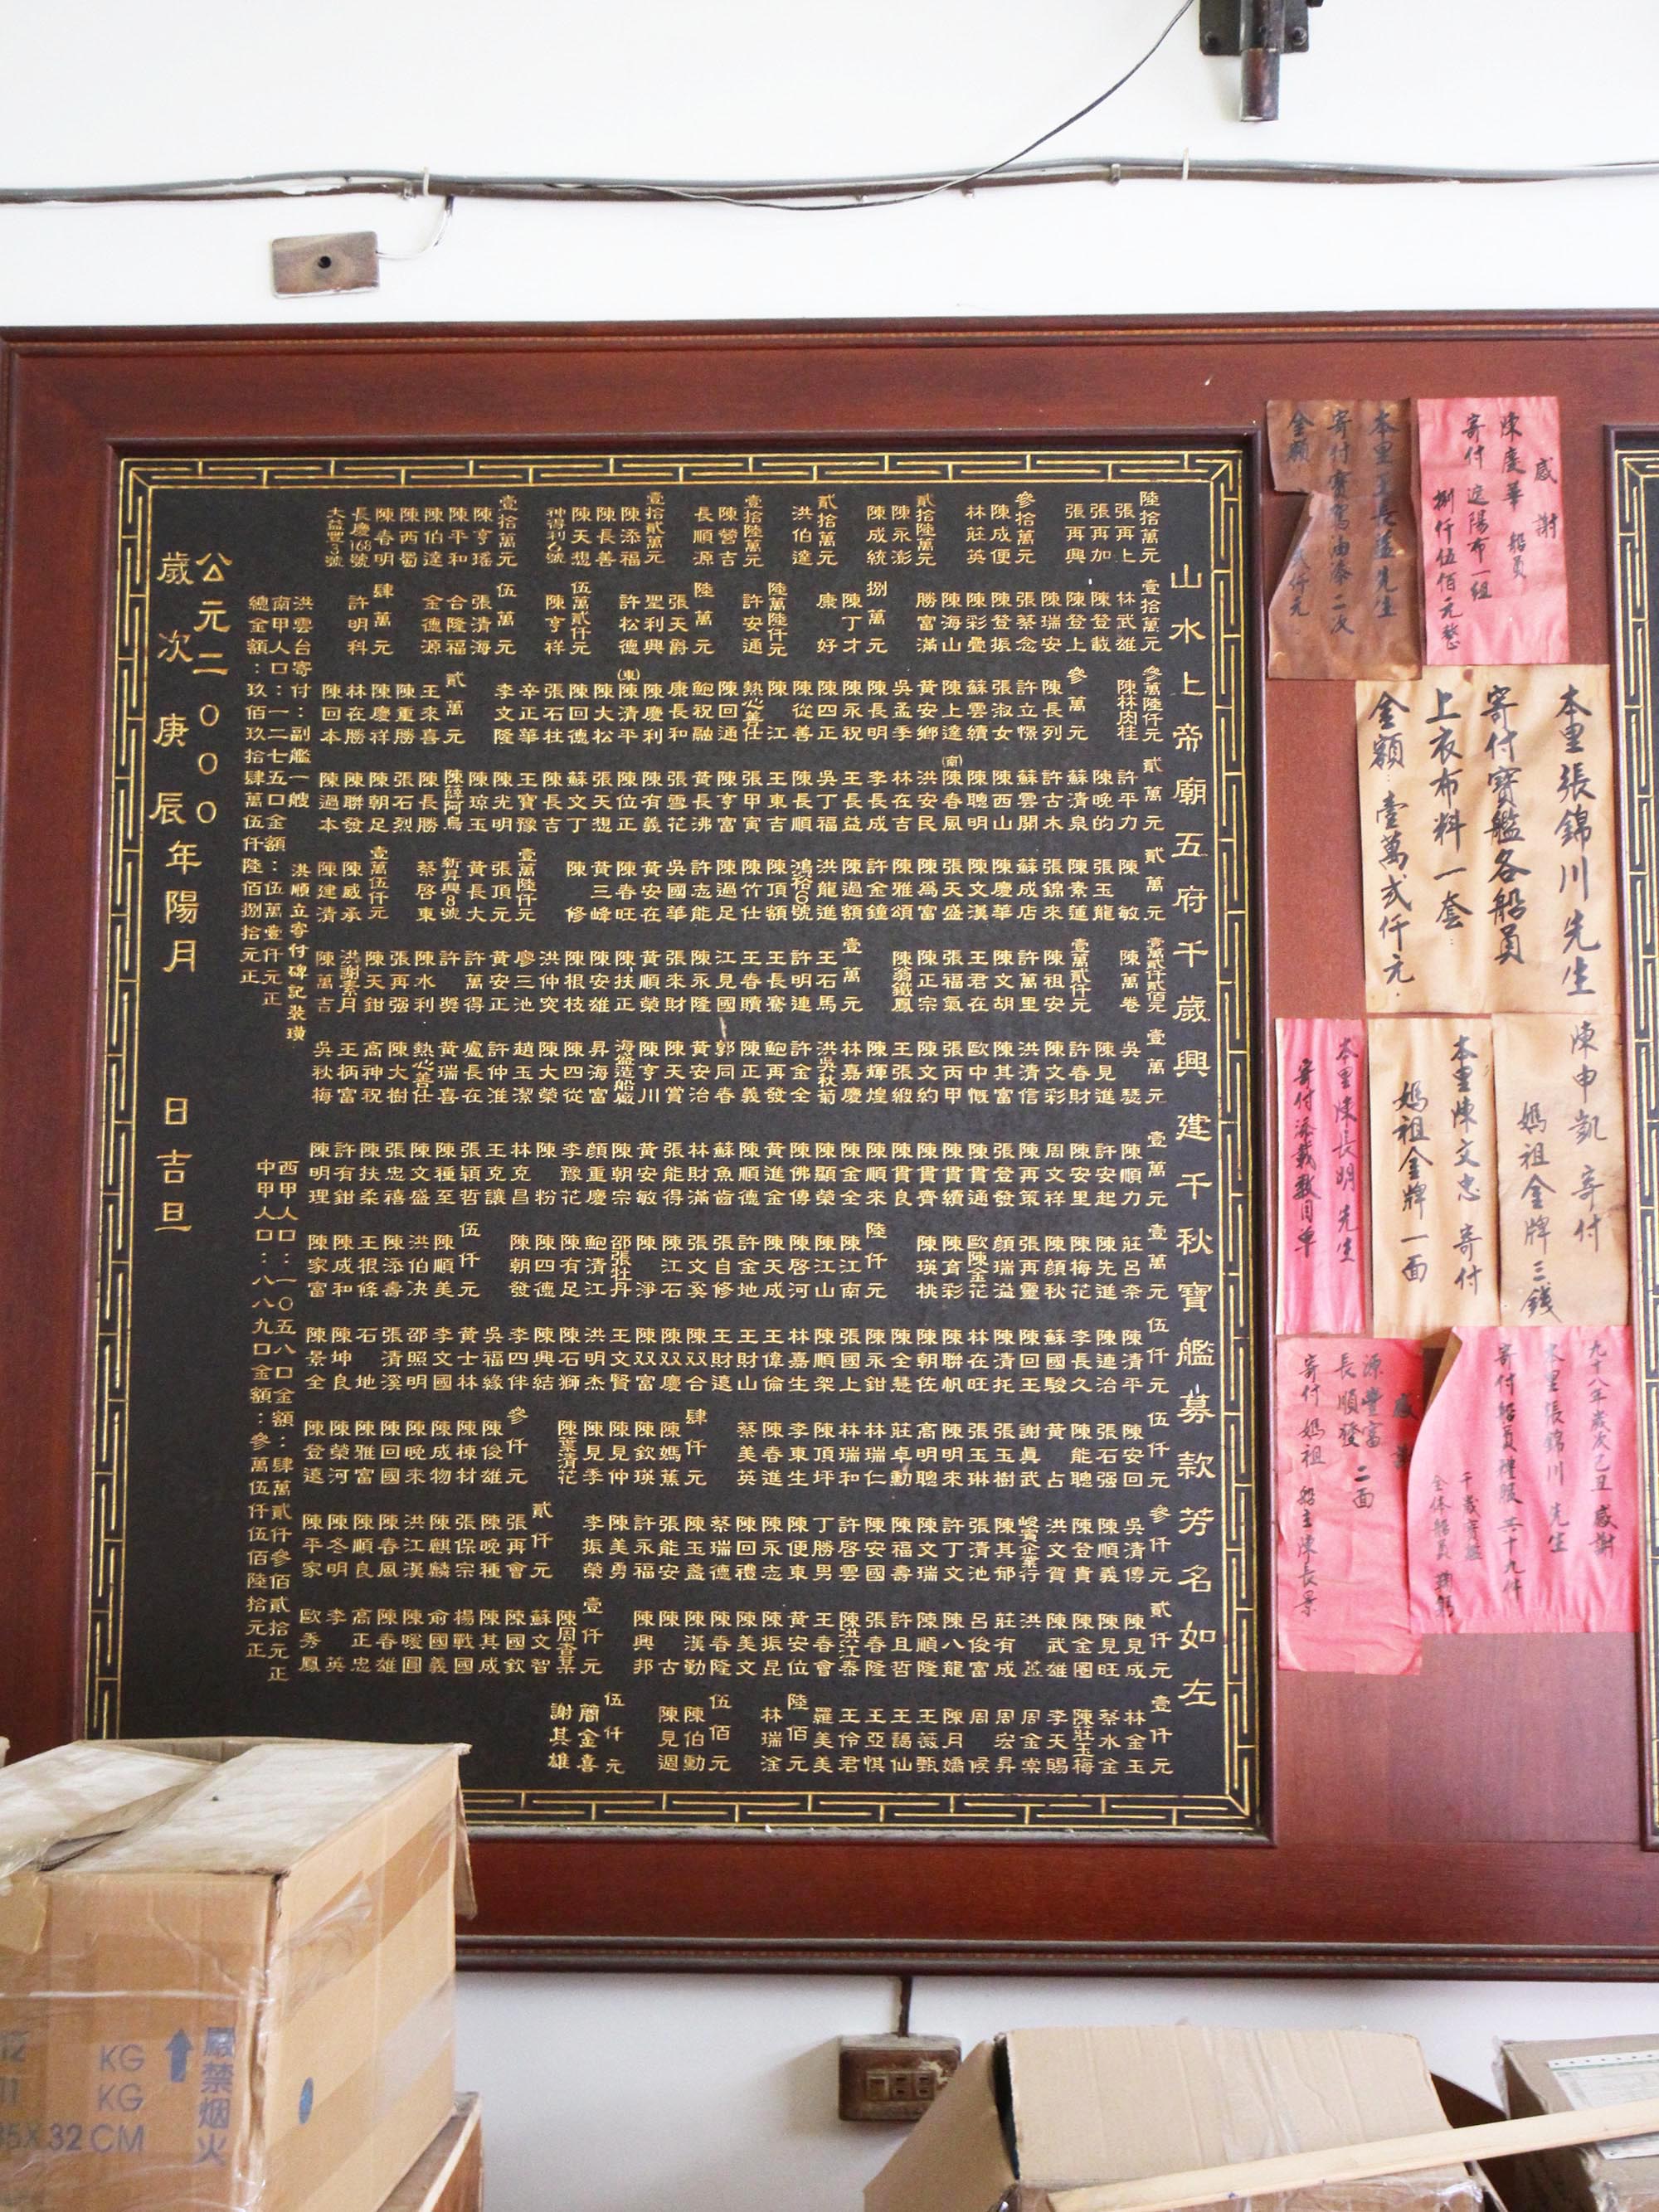 山水上帝廟五府千歲興建千秋寶艦募款芳名如左
陸拾萬元
張再上
張再加
張再興
參拾萬元
陳成便
林莊英
貳拾陸萬元
陳永澎
陳成統
貳拾萬元
洪伯達
壹拾陸萬元
陳營吉
長順源
壹拾貳萬元
陳添福
陳長善
陳天想
神得利6號
壹拾萬元
陳亨瑤
陳平和
陳伯達
陳西蜀
陳春明
長慶168號
大益豐3號
壹拾萬元
林武雄
陳登載
陳登上
陳瑞安
張蔡念
陳登振
陳彩疊
陳海山
勝富滿
捌萬元
陳丁才
康好
陸萬陸仟元
許安通
陸萬元
張天爵
聖利興
許松德
伍萬貳仟元
陳亨祥
伍萬元
張清海
合隆福
金德源
肆萬元
許明科
參萬陸仟元
陳林肉桂
參萬元
陳長列
許立憬
張淑女
蘇雲續
陳上達
黃安鄉
吳孟季
陳長明
陳永祝
陳四正
陳從善
陳江
熱心善仕
陳回通
鮑祝融
康長和
陳慶利
(東)陳清平
陳大松
陳回德
張石柱
辛正華
李文隆
貳萬元
王來喜
陳重勝
陳慶祥
林在勝
陳回本
貳萬元
許平力
陳晚的
蘇清泉
許古木
蘇雲開
陳西山
陳聰明
(南)陳春風
洪安民
林在吉
李長成
王長益
吳丁福
陳長順
王東吉
張甲寅
陳亨富
黃長沸
張雪花
陳有義
陳位正
張天想
蘇文丁
陳長吉
王寶豫
陳光明
陳琼玉
陳薛阿烏
陳長勝
張石烈
陳朝足
陳聯發
陳過本
貳萬元
陳敏
張玉龍
陳素蓮
張錦來
蘇成店
陳慶華
陳文漢
張天盛
陳爲富
陳雅頌
許金鐘
陳過額
洪龍進
鴻裕6號
陳頂額
陳竹仕
陳過足
許志能
吳國華
黃安在
陳春旺
黃三峰
陳修
壹萬陸仟元
張頂元
黃長大
新昇興8號
蔡啓東
壹萬伍仟元
陳威承
陳建清
壹萬貳仟貳佰元
陳萬卷
壹萬貳仟元
陳祖安
許萬里
陳文胡
王君在
張福氣
陳正宗
陳翁鐵鳳
壹萬元
王石馬
許明連
王長騫
江見國
陳永隆
張來財
黃順榮
陳扶正
陳安雄
陳根枝
洪仲突
廖三池
黃安正
許萬得
許獎
陳水利
張再强
陳天鉗
洪謝素月
陳萬吉
壹萬元
吳琴
陳見進
許春財
陳文彩
洪清信
陳其富
歐中慨
張丙甲
陳文約
王張緞
陳輝煌
林嘉慶
洪吳秋菊
許金全
鮑再發
陳正義
郭同春
黃安治
陳天賞
陳亨川
海盛造船廠
昇海富
陳四從
陳大榮
趙玉潔
許仲淮
盧長在
黃瑞喜
熱心善仕
陳大樹
高神祝
王柄富
吳秋梅
壹萬元
陳順力
許安起
陳安里
周文祥
陳再策
陳登發
陳貫通
陳貫續
陳貫齊
陳貫良
陳順來
陳金全
陳顯榮
陳佛傳
黃進金
陳順德
蘇魚齒
林財滿
張能得
黃安敏
陳朝宗
顏重慶
李豫花
陳粉
林克昌
王克讓
張穎哲
陳種至
陳文盛
張忠禧
陳扶柔
許有鉗
陳明理
壹萬元
莊呂柰
陳先進
陳梅花
陳顏秋
張再靈
顏瑞溢
歐陳金花
陳育彩
陳瑛桃
陸仟元
陳江南
陳江山
陳啓河
陳天成
許金地
張自修
張文奚
陳江石
陳淨
邵張牡丹
鮑清江
陳有足
陳四德
陳朝發
伍仟元
陳順美
洪伯決
陳添壽
王根條
陳成和
陳家富
伍仟元
陳清平
陳連治
李長久
蘇國駿
陳回王
陳清托
林在旺
陳聯帆
陳朝佐
陳全慧
陳永鉗
張國上
陳順架
林嘉生
王偉倫
王財山
王財遠
陳双合
陳双慶
陳双富
王文賢
洪明杰
陳石獅
陳興結
李四伴
吳福緣
黃士林
李文國
邵照明
張清溪
石地
陳坤良
陳景全
伍仟元
陳安回
張石强
陳能聰
黃占
謝眞武
張玉樹
張玉琳
陳明來
高明聰
莊卓勳
林瑞仁
林瑞和
陳頂坪
李東生
陳春進
蔡美英
肆仟元
陳媽薰
陳欽瑛
陳見仲
陳見季
陳葉清花
參仟元
陳俊雄
陳棟材
陳成物
陳晚來
陳回國
陳雅富
陳榮河
陳登遠
參仟元
吳清傳
陳順義
陳登貴
洪文賀
峻賓企業行
陳其郁
張清池
許丁文
陳文瑞
陳福壽
陳安國
許啓雲
丁勝男
陳便東
陳永志
陳回禮
蔡瑞德
陳玉盞
陳能安
許永福
陳美勇
李振榮
貳仟元
張再會
陳晚種
張保宗
陳麒麟
洪江漢
陳春風
陳順良
陳冬明
陳平家
貳仟元
陳見成
陳見旺
陳金圈
陳武雄
洪蔗
莊有成
呂俊富
陳八龍
陳順隆
許且哲
張春隆
陳洪江泰
王春會
黃安位
陳振昆
陳美文
陳春隆
陳漢勤
陳古
陳興邦
壹仟元
陳周香菓
蘇文智
陳國欽
陳其成
楊戰國
俞國義
陳曖圓
陳春雄
高正忠
李英
歐秀鳳
壹仟元
林金玉
蔡水金
陳莊玉梅
李天賜
周金棠
周宏昇
周候
陳月嬌
王薇甄
王謁仙
王亞惧
王伶君
羅美美
陸佰元
林瑞淦
伍佰元
陳伯勳
陳見週
伍仟元
蕳金喜
謝其雄
洪雲台寄付：副艦一艘
洪順立寄付碑記裝璜
南甲人口：一二七五口金額：伍萬壹仟元正
總金額：玖佰玖拾肆萬伍仟陸佰捌拾元正
西甲人口：一０五八口金額：肆萬貳仟參佰貳拾元正
中甲人口：八八九口金額：參萬伍仟伍佰陸拾元正
公元二０００
歲次庚辰年陽月 日吉旦
感謝
陳慶華 船員
寄付 遮陽布一組
捌仟伍佰元整
本里王長益先生
寄付寶艦油漆二次
金額
本里張錦川先生
寄付寶艦各船員
上衣布料一套
金額：壹萬貳仟元
陳申凱 寄付
媽祖金牌三錢
本里陳文忠 寄付
媽祖金牌一面
本里陳長明先生
寄付添載數目單
九十八年歲次己丑 感謝
本里張錦川先生
寄付船員禮服共十九件
千歲寶艦
全体船員 鞠躬
感謝
源豐富
長順發 二面
寄付媽祖 船主陳長景
嚴禁烟火
KG
KG
32 CM